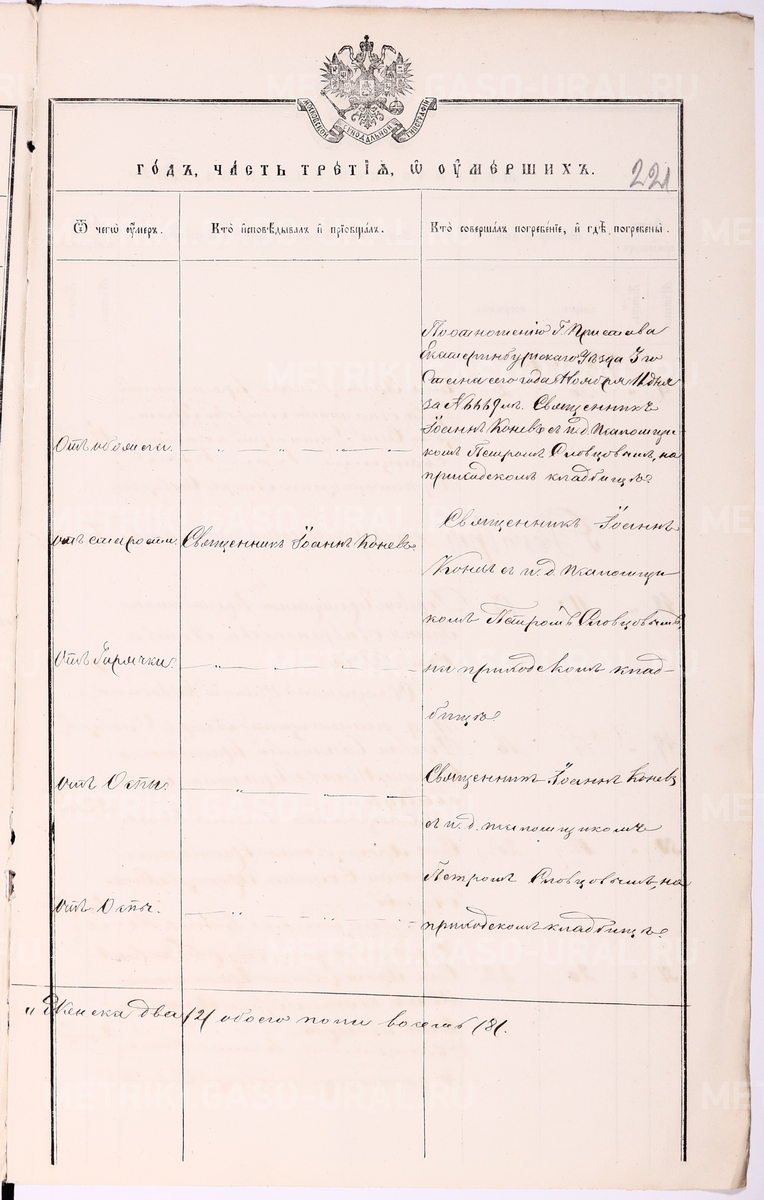 METRIKI.GASO-URAL.RU
МОСКОВСКОЙ СѴНОДАЛЬНОЙ ТИПОГРАФІИ
го́дъ, ча́сть тре́тїѧ, ѡ оу҆ме́ршихъ.
221
Ѿ чегѡ̀ оу҆́меръ.
Кто̀ и҆сповѣ́дывалъ и҆ прїѡбща́лъ.
Кто̀ соверша́лъ погребе́нїе, и҆ гдѣ̀ погребены̀.
По отношенію Г. Пристава
Екатеринбургскаго Уѣзда 3го
Стана сего года Ноября 11 дня
за № Священникъ
Іоаннъ Коневъ съ и. д. псаломщи
комъ Петромъ Словцовымъ, на
приходскомъ кладбищѣ.
Отъ
отъ старости.
Священникъ Іоаннъ Коневъ.
Священникъ Іоаннъ
Коневъ съ и. д. псаломщи
комъ Петромъ Словцовымъ,
на приходскомъ клад-
бищѣ.
Отъ Горячки.
отъ Оспы.
Священникъ Іоаннъ Коневъ
съ и. д. псаломщикомъ
Петромъ Словцовымъ, на
приходскомъ кладбищѣ.
Отъ Оспы.
Женска два /2/ обоего пола восемь /8/.